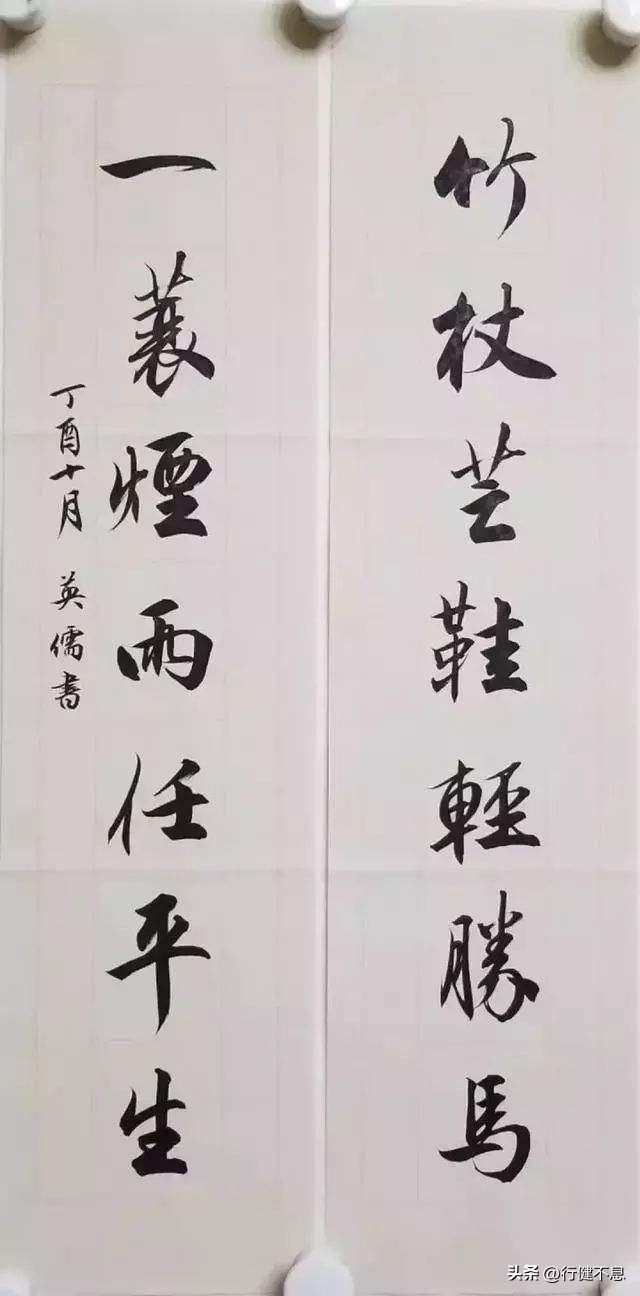 竹杖芒鞋輕勝馬
一蓑煙雨任平生
丁酉十月 英儒書
头条 @行健不息